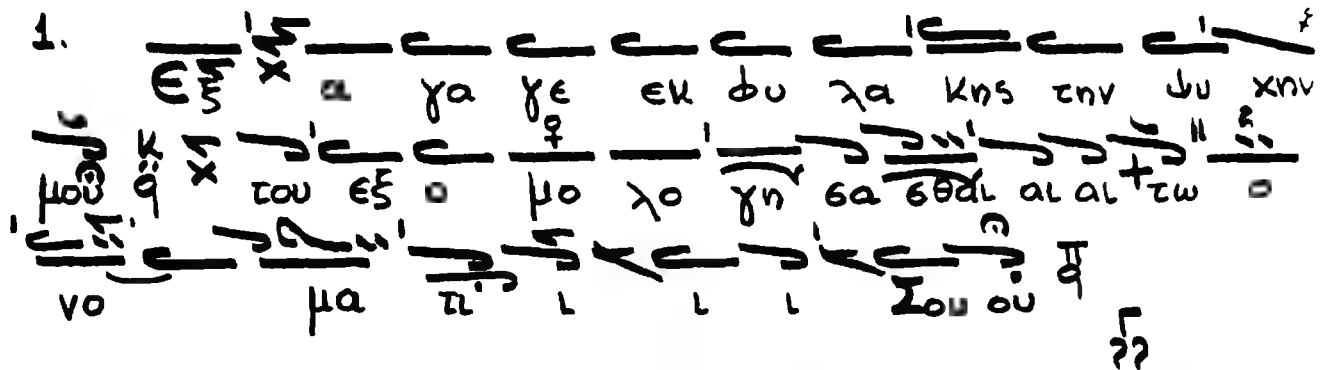 1. Εξ α γα γε εκ φυ λα κης την ψυ χην
μου του εξ ο μο λο γη σα σθαι αι αι τω ο
νο μα τι ι ι ι Σου ου